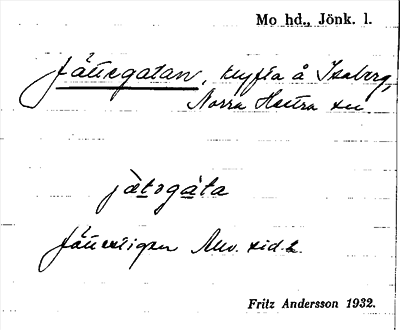 Mo hd., Jönk. l.
Jättegatan, klyfta å Isaberg,
Norra Hestra sn.
jàtogàta
Jättestigen Anv. sid. 2.
Fritz Andersson 1932.